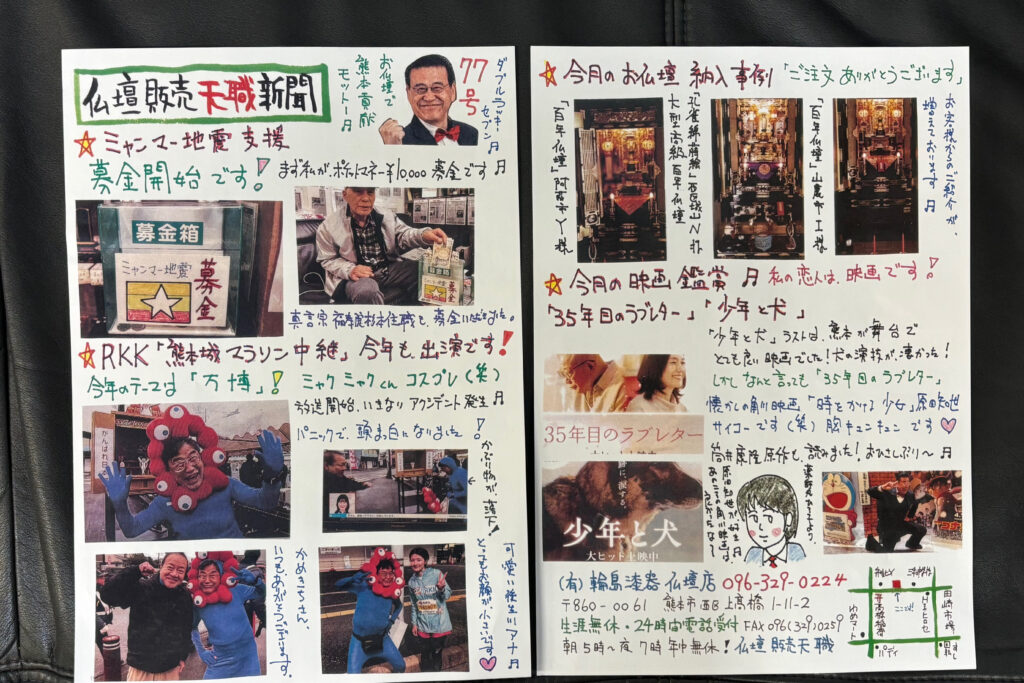 仏壇販売天職新聞
お仏壇で
熊本貢献
モットー♫
77号
ダブルラッキー
セブン♫
☆ミャンマー地震支援
募金開始です!
まず私がポケットマネー¥10,000募金です♫
募金箱
ミャンマー地震
募金
募金箱
募金
☆RKK「熊本城マラソン中継」今年も、出演です!
今年のテーマは「万博」!
ミャクミャクくんコスプレ(笑)
放送開始、いきなりアクシデント発生♫
パニックで、頭まっ白になりました!
かぶり物が、落下!
がんばれ
かめきちさん、
いつもありがとうございます。
可愛い後生川アナ♫
とってもお顔が、小さいです
☆今月のお仏壇 納入事例「ご注文ありがとうございます」
「百年仏壇」阿蘇市Y様
大型高級百年仏壇
「百年仏壇」山鹿市I様
お客様からのご紹介が、
増えております♫
☆今月の映画鑑賞♫ 私の恋人は、映画です!
「35年目のラブレター」「少年と犬」
「少年と犬」ラストは、熊本が舞台で
とても良い映画でした!犬の演技が、凄かった!
しかしなんと言っても「35年目のラブレター」
懐かしの角川映画「時をかける少女」原田知世
サイコーです(笑)胸キュンキュンです
筒井康隆原作も、読みました!おひさしぶり〜♫
35年目のラブレター
少年と犬
大ヒット上映中
(有)輪島漆器仏壇店 096-329-0224
〒860-0061 熊本市西区上高橋1-11-2
生涯無休・24時間電話受付 FAX096(329)0259
朝5時〜夜7時年中無休!仏壇販売天職
ここ!
田崎市場